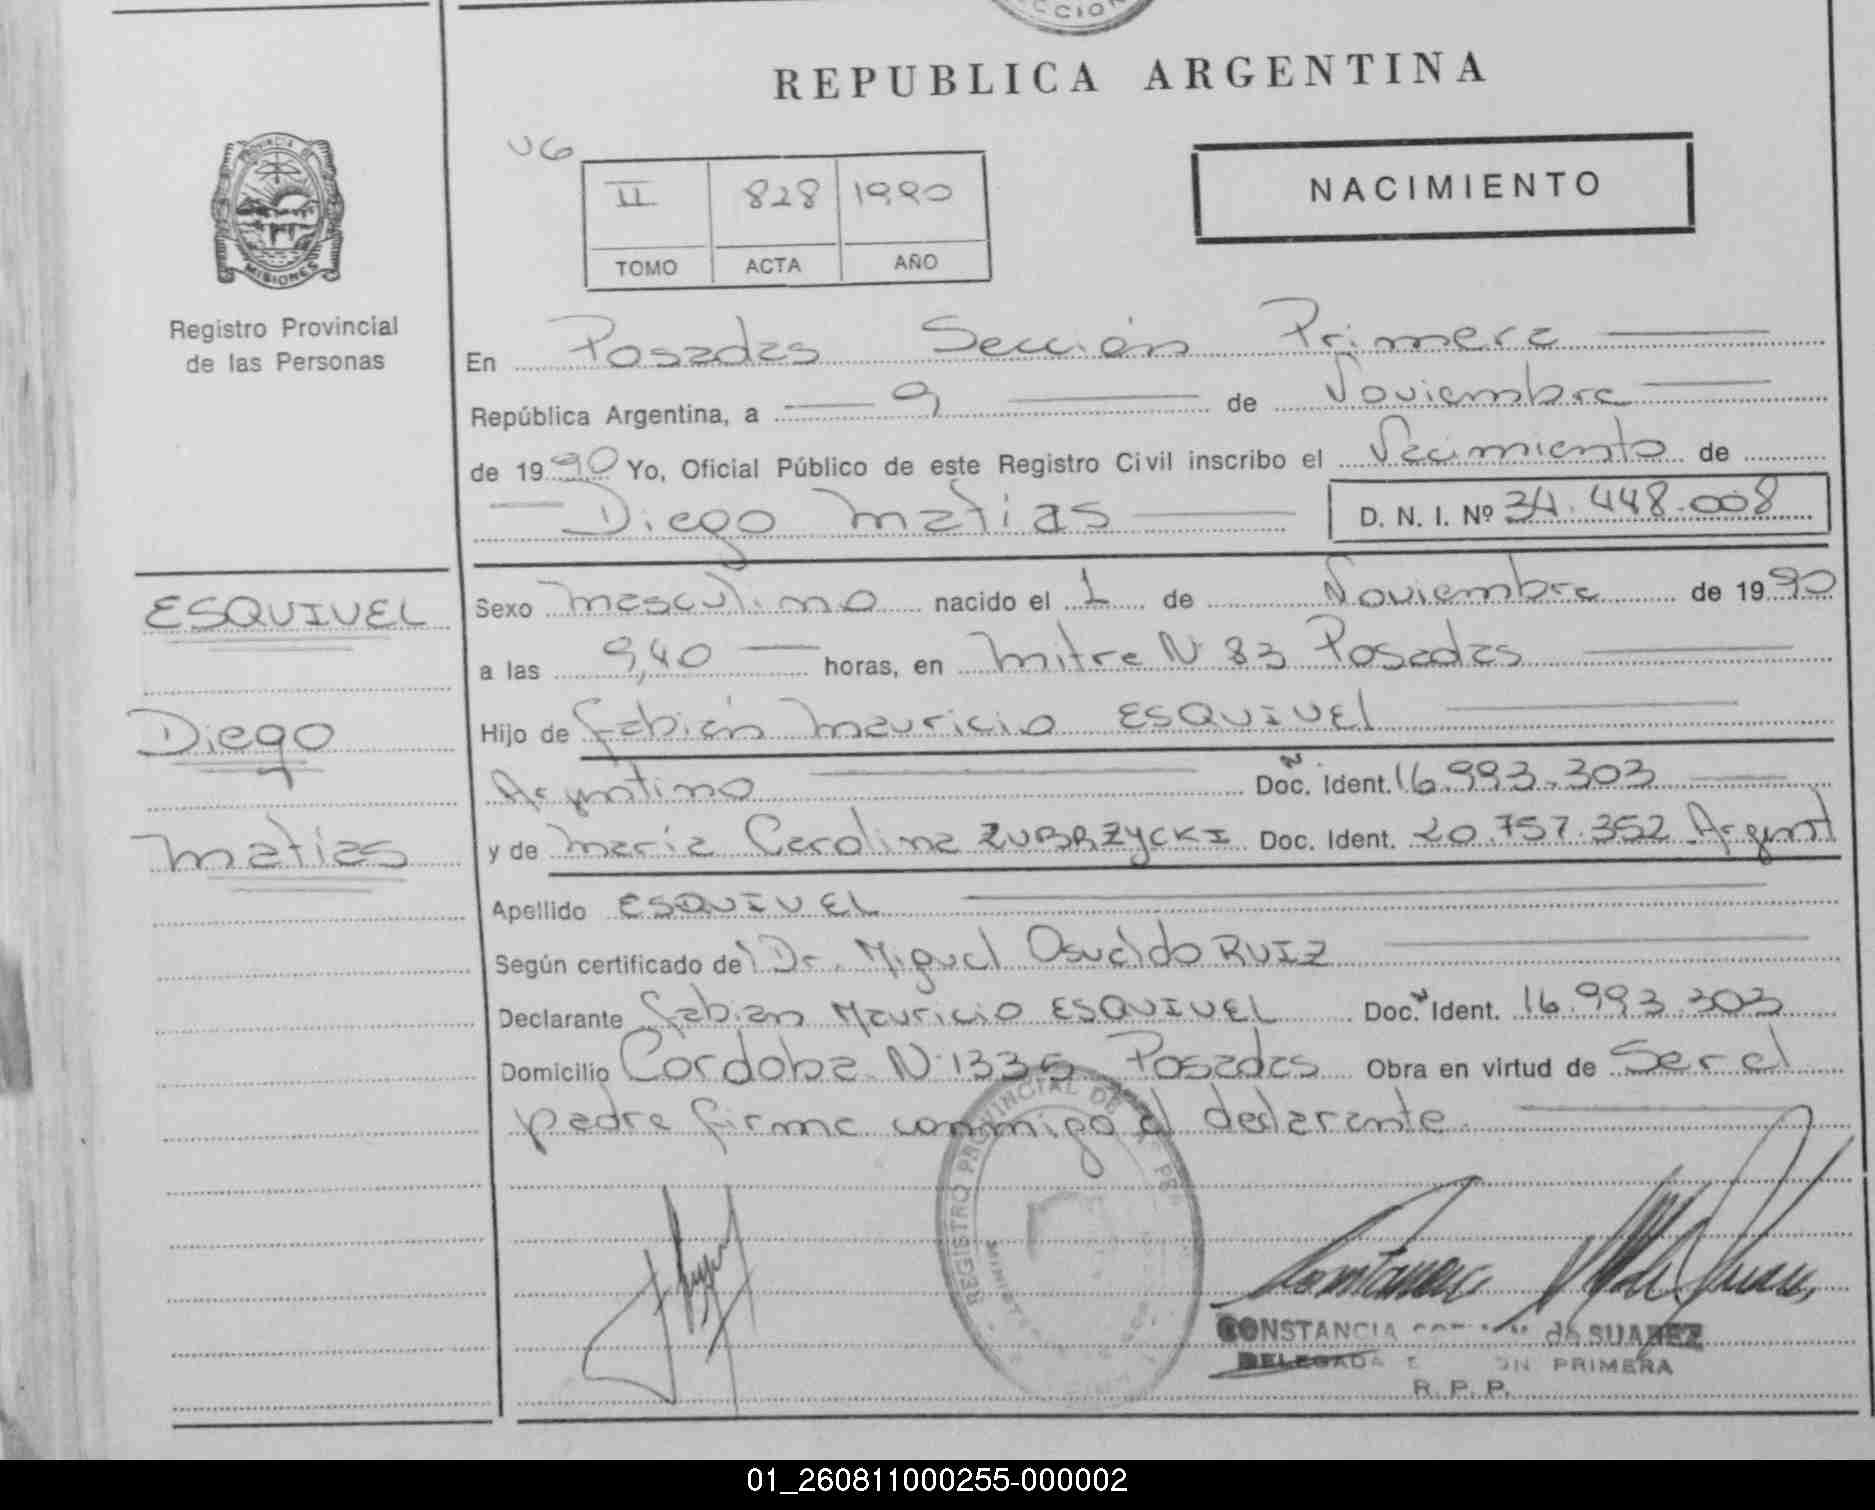 CCION
REPUBLICA ARGENTINA
PROVINCIA DE
MISIONES
Registro Provincial
de las Personas
UG
II 828 1990
TOMO ACTA AÑO
NACIMIENTO
En Posadas Sección Primera
República Argentina, a 9 de Noviembre
de 1990 Yo, Oficial Público de este Registro Civil inscribo el Nacimiento de
Diego Matias D. N. I. Nº 34.448.008
ESQUIVEL
Diego
Matias
Sexo Masculino nacido el 1 de Noviembre de 1990
a las 9,40 horas, en Mitre N 83 Posadas
Hijo de Fabián Mauricio ESQUIVEL
Argentino Doc. Ident. 16.993.303
y de María Carolina ZUBRZYCKI Doc. Ident. 20.757.352 Argent
Apellido ESQUIVEL
Según certificado del Dr. Miguel Osvaldo RUIZ
Declarante Fabian Mauricio ESQUIVEL Doc. Ident. 16.993.303
Domicilio Cordoba N 1335 Posadas Obra en virtud de Ser el
padre firma conmigo el declarante
REGISTRO PROVINCIAL DE
CONSTANCIA de SUAREZ
DELEGADA PRIMERA
R. P. P.
01_260811000255-000002